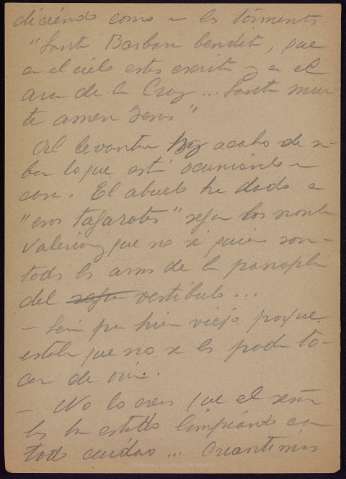 diciéndo como en las tormentas
"Santa Barbara bendita, que
en el cielo estas escrita y en el
ara de la Cruz... Santa muer
te amen Jesus"
Al levantarse hoy acaba de sa-
ber lo que está ocurriendo en
casa. El abuelo ha dado a
"esos tagarotes" según los nombra
Valeria y que no se quien son
todas las armas de la panoplia
del vestíbulo...
— Será por bien viejo porque
estaba que no se les podía to-
car de
— No lo creas que el señor
las ha estado limpiando con
todo cuidado... Cuantimas